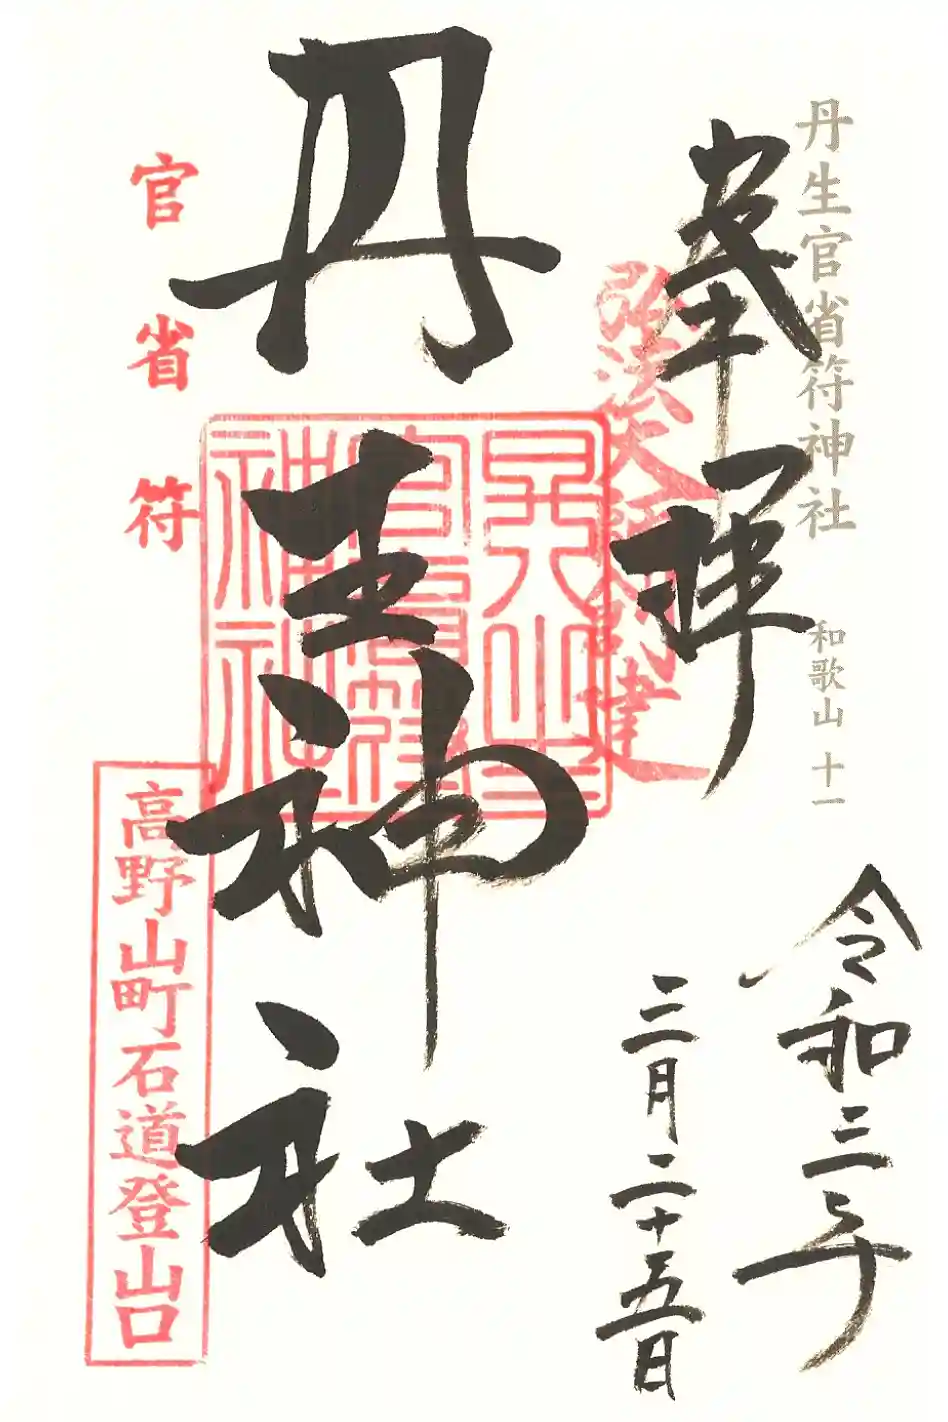 丹生官省符神社 和歌山 十一
奉拝
弘法大師創建
令和三年
三月二十五日
丹生神社
官省符
高野山町石道登山口